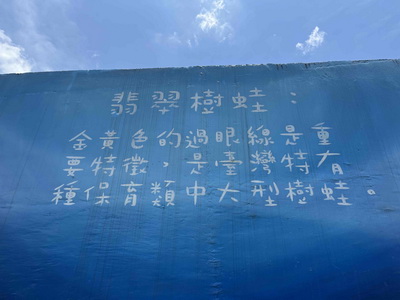 翡翠樹蛙：
金黃色的過眼線是重
要特徵，是臺灣特有
種保育類中大型樹蛙。